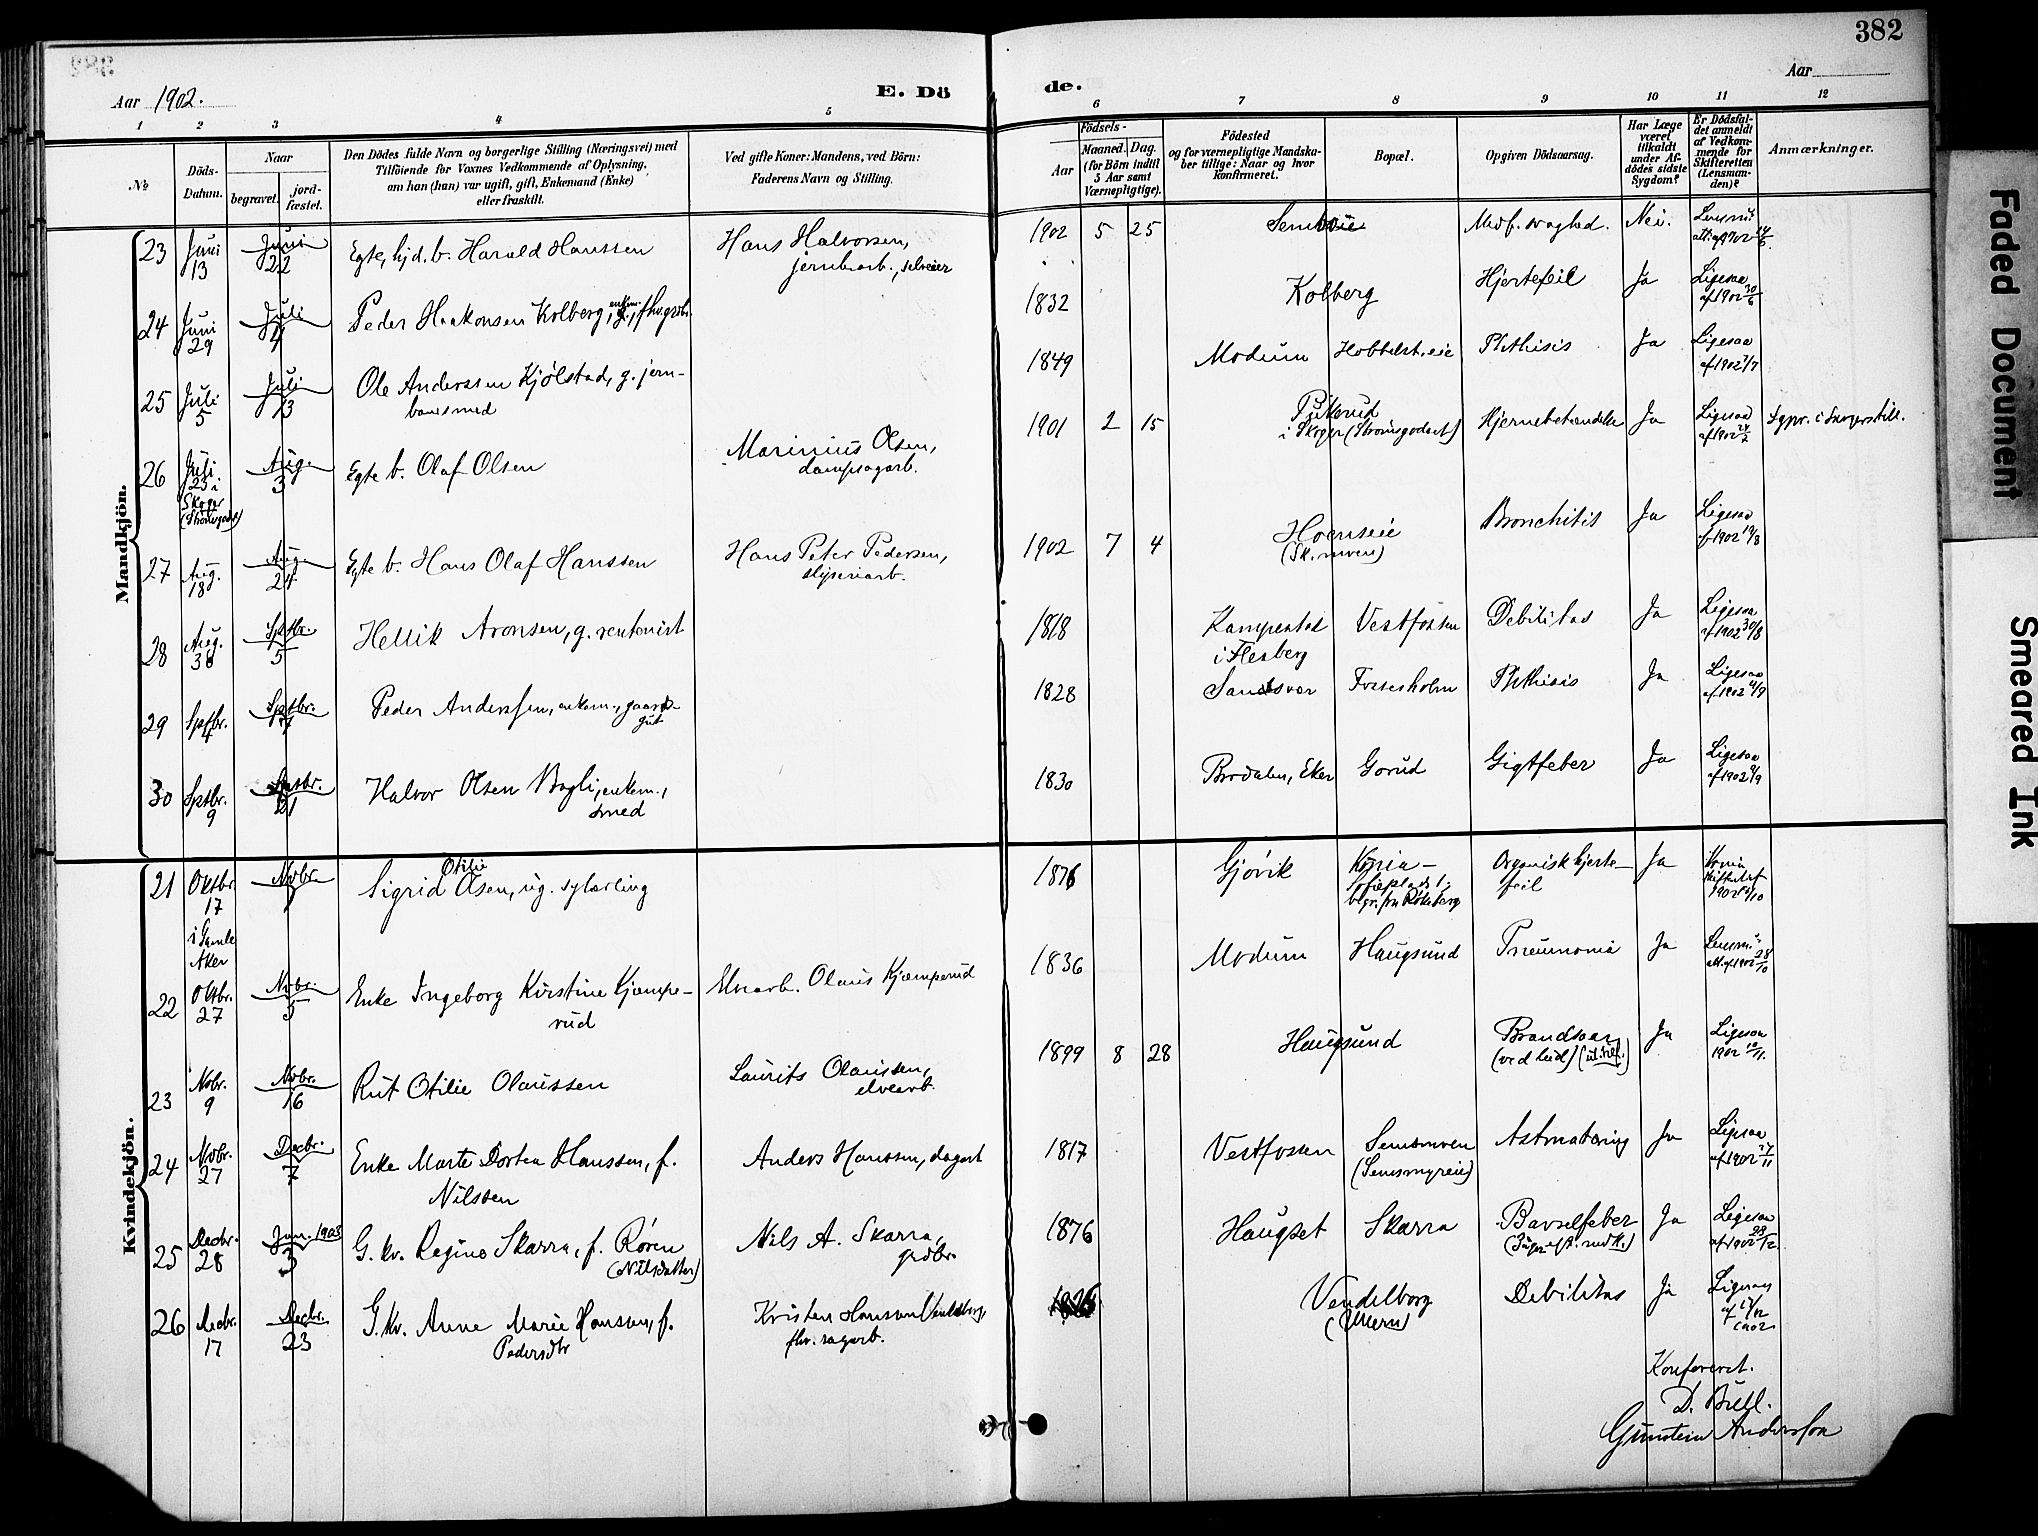 382
Aar 1902.
E. Dö de.
Aar
1 2 3 4 5 6 7 8 9 10 11 12
No
Döds-
Datum.
Naar
begravet.
jord-
fæstet.
Den Dödes fulde Navn og borgerlige Stilling (Næringsvei) med
Tilföiende for Voxnes Vedkommende af Oplysning,
om han (hun) var ugift, gift, Enkemand (Enke)
eller fraskilt.
Ved gifte Koner: Mandens, ved Börn:
Faderens Navn og Stilling.
Födsels-
Aar
Maaned. Dag.
(for Börn indtil
5 Aar samt
Værnepligtige).
Födested
og for værnepligtige Mandska-
ber tillige: Naar og hvor
konfirmeret.
Bopæl.
Opgiven Dödsaarsag.
Har Læge
været
tilkaldt
under Af-
dödes sidste
Sygdom?
Er Dödsfal-
det anmeldt
af Vedkom-
mende for
Skifteretten
(Lensman-
den)?
Anmærkninger.
Mandkjön.
23 Juni 13 Juni 22 Egte, hjd. b. Harald Hanssen Hans Halvorsen,
jernbarb., selveier
1902 5 25 Semseie Medf. svaghed. Nei.
24 Juni 29 Juli 4 Peder Haakonsen Kolberg, enkem., fhv. grdbr.
1832 Kolberg Hjertefeil Ja Ligesaa
af 1902 30/6
25 Juli 5 Juli 13 Ole Anderssen Kjølstad, g. jern-
banesmed
1849 Modum Hobbelst. eie Phthisis Ja Ligesaa
af 1902 7/7
26 Juli 25 i Skoger Aug. 3 Egte b. Olaf Olsen Marinius Olsen,
dampsagarb.
1901 2 15 Pukerud
i Skoger (Strømsgodset) Hjernebetændelse Ja Ligesaa
27 Aug. 18 Aug. 24 Egte b. Hans Olaf Hanssen Hans Peter Pedersen,
sliperiarb.
1902 7 4 Hoenseie Bronchitis Ja Ligesaa
af 1902 19/8
28 Aug. 30 Sptbr. 5 Hellik Aronsen, g. rentenist
1818 Kampestad
i Flesberg Vestfossen Debilitas Ja Ligesaa
af 1902 30/8
29 Sptbr. 4 Sptbr. Peder Anderssen, enkem., gaards-
gut
1828 Sandsvær Fossesholm Phthisis Ja Ligesaa
af 1902 4/9
30 Sptbr. 9 Sptbr. 21 Halvor Olsen Bagli, enkem.,
smed
1830 Brodalen, Eker Gorud Gigtfeber Ja Ligesaa
af 1902 9/9
Kvindekjön.
21 Oktbr. 17 i Gamle Aker Nvbr. 1 Sigrid Otilie Olsen, ug. sylærling
1876 Gjøvik Organisk hjerte-
feil Ja
22 Oktbr. 27 Nvbr. 5 Enke Ingeborg Kirstine Kjæmpe-
rud Elvearb. Olaus Kjæmperud
1836 Modum Haugsund Pneumonia Ja
23 Nvbr. 9 Nvbr. 16 Rut Otilie Olaussen Laurits Olaussen,
elvearb.
1899 8 28 Haugsund Brandsaar Ja Ligesaa
24 Nvbr. 27 Decbr. 7 Enke Marte Dortea Hanssen, f.
Nilssen Anders Hanssen, dagarb
1817 Vestfossen Semsmoen
(Semsmyreie) Ja Ligesaa
af 1902 27/11
25 Decbr. 28 Jan. 1903 3 G. kv. Regine Skarra, f. Røren
(Nilsdatter) Nils A. Skarra,
grdbr.
1876 Haugset Skarra Barselfeber Ja Ligesaa
26 Decbr. 17 Decbr. 23 G. kv. Anne Marie Hanssen, f.
Pedersdtr Kristen Hanssen Vendelborg,
fhv. sagarb.
Vendelborg Debilitas Ja Ligesaa
af 17/12
1902
Konfereret.
D. Bull.
Gunstein Anderssen
Faded Document
Smeared Ink